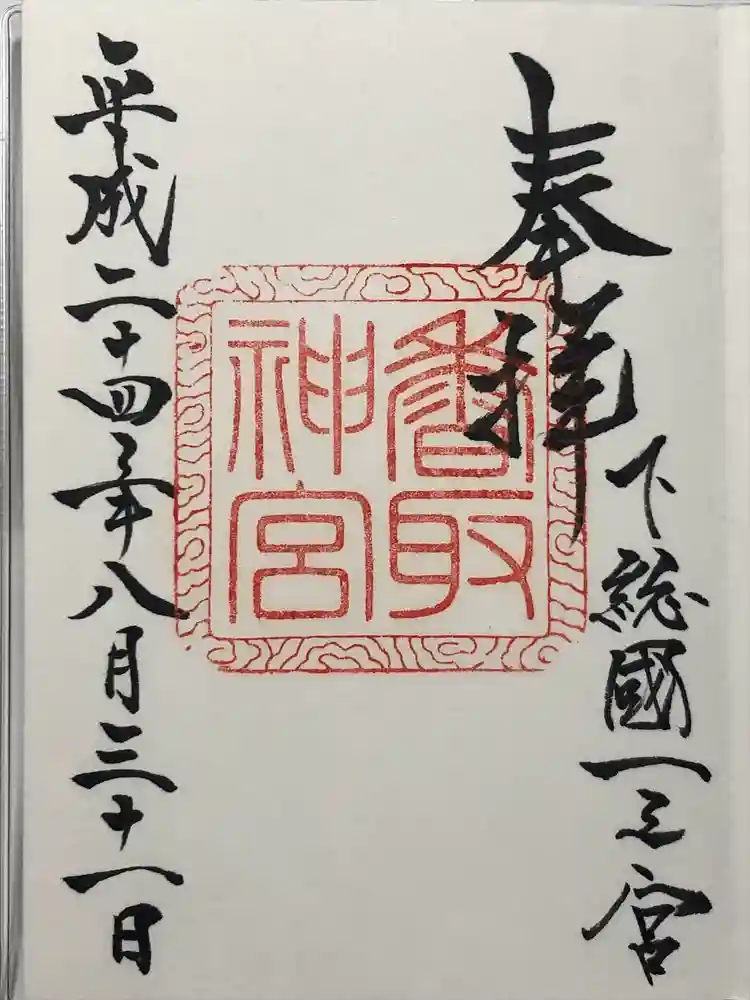 奉拝
下総國一之宮
香取神宮
平成二十四年八月三十一日